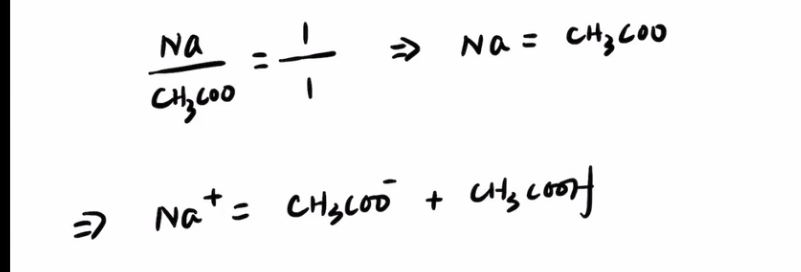 Na/CH₃COO = 1/1 ⇒ Na = CH₃COO
⇒ Na⁺ = CH₃COO⁻ + CH₃COOH